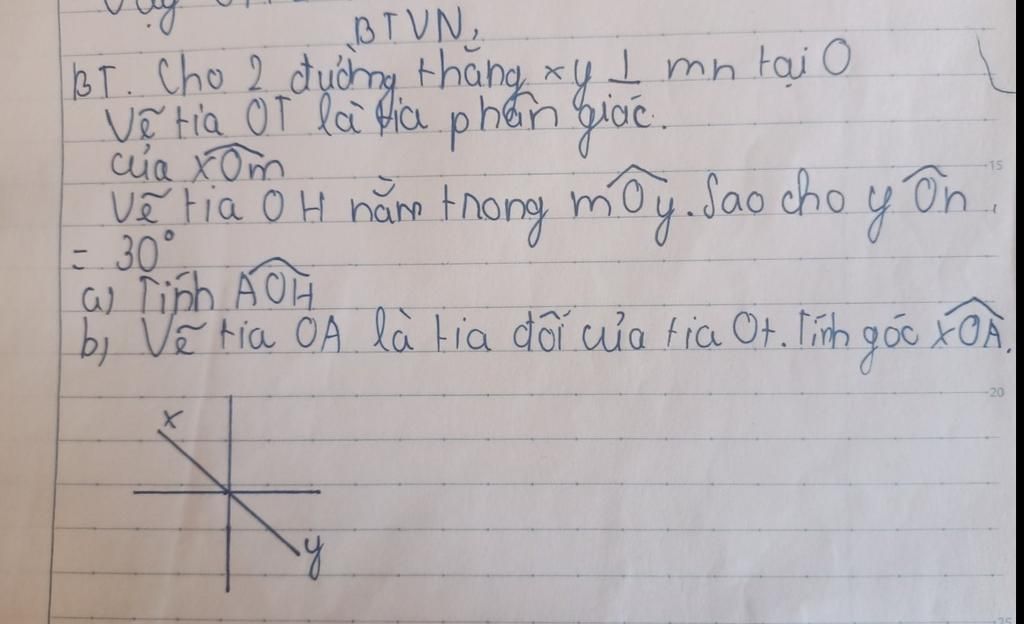 BTVN,
BT. Cho 2 đường thẳng xy ⊥ mn tại O
Vẽ tia OT là tia phân giác.
của xOm
Vẽ tia OH nằm trong mOy. Sao cho yOn.
= 30°
a) Tính AOH
b) Vẽ tia OA là tia đối của tia Ot. Tính góc xOA.
20
x
y